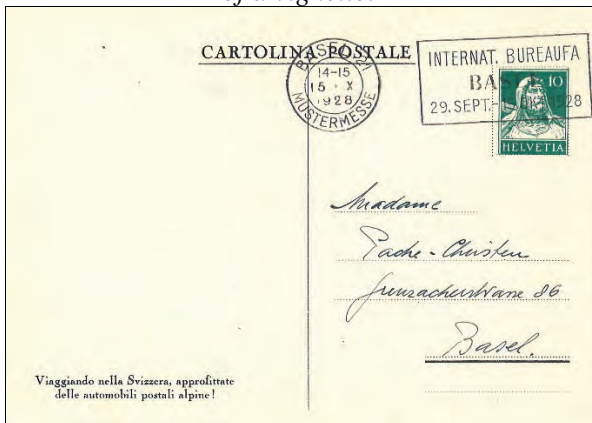 CARTOLINA POSTALE
BASEL 21
14-15
15 · X
1928
MUSTERMESSE
INTERNAT. BUREAUFA
BASEL
29. SEPT.-15. OKT. 1928
10
HELVETIA
Madame
Pache-Christen
Grenzacherstrasse 86
Basel.
Viaggiando nella Svizzera, approfittate
delle automobili postali alpine!